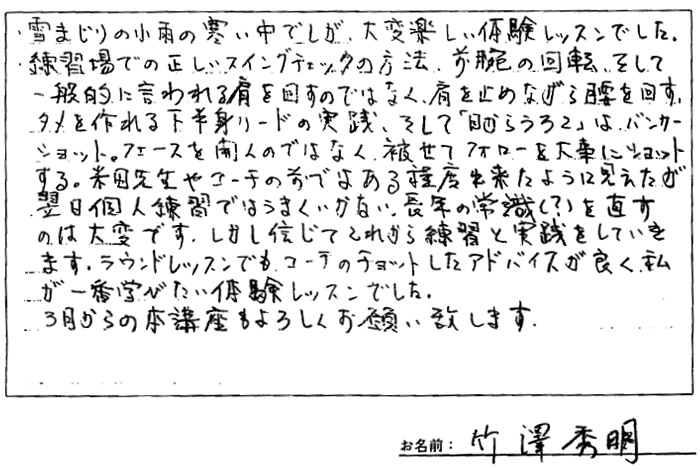 ・雪まじりの小雨の寒い中でしたが、大変楽しい体験レッスンでした。
・練習場での正しいスイングチェックの方法、前腕の回転、そして
一般的に言われる肩を回すのではなく、肩を止めながら腰を回す。
タメを作れる下半身リードの実践、そして「目からうろこ」は、バンカー
ショット。フェースを開くのではなく、被せてフォローを大事にショット
する。米田先生やコーチの前ではある程度出来たように見えたが
翌日個人練習ではうまくいかない。長年の常識(?)を直す
のは大変です。しかし信じてこれから練習と実践をしていき
ます。ラウンドレッスンでも、コーチのチョットしたアドバイスが良く、私
が一番学びたい体験レッスンでした。
3月からの本講座もよろしくお願い致します。
お名前: 竹澤秀明